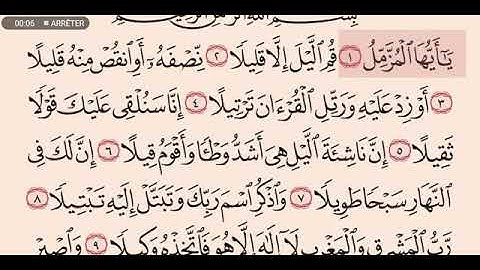 00:06 ■ ARRÊTER
بِسْمِ ٱللَّهِ ٱلرَّحْمَٰنِ ٱلرَّحِيمِ
يَٰٓأَيُّهَا ٱلْمُزَّمِّلُ ١ قُمِ ٱلَّيْلَ إِلَّا قَلِيلًا ٢ نِّصْفَهُۥٓ أَوِ ٱنقُصْ مِنْهُ قَلِيلًا
٣ أَوْ زِدْ عَلَيْهِ وَرَتِّلِ ٱلْقُرْءَانَ تَرْتِيلًا ٤ إِنَّا سَنُلْقِى عَلَيْكَ قَوْلًا
ثَقِيلًا ٥ إِنَّ نَاشِئَةَ ٱلَّيْلِ هِىَ أَشَدُّ وَطْـًٔا وَأَقْوَمُ قِيلًا ٦ إِنَّ لَكَ فِى
ٱلنَّهَارِ سَبْحًا طَوِيلًا ٧ وَٱذْكُرِ ٱسْمَ رَبِّكَ وَتَبَتَّلْ إِلَيْهِ تَبْتِيلًا ٨
رَّبُّ ٱلْمَشْرِقِ وَٱلْمَغْرِبِ لَآ إِلَٰهَ إِلَّا هُوَ فَٱتَّخِذْهُ وَكِيلًا ٩ وَٱصْبِرْ